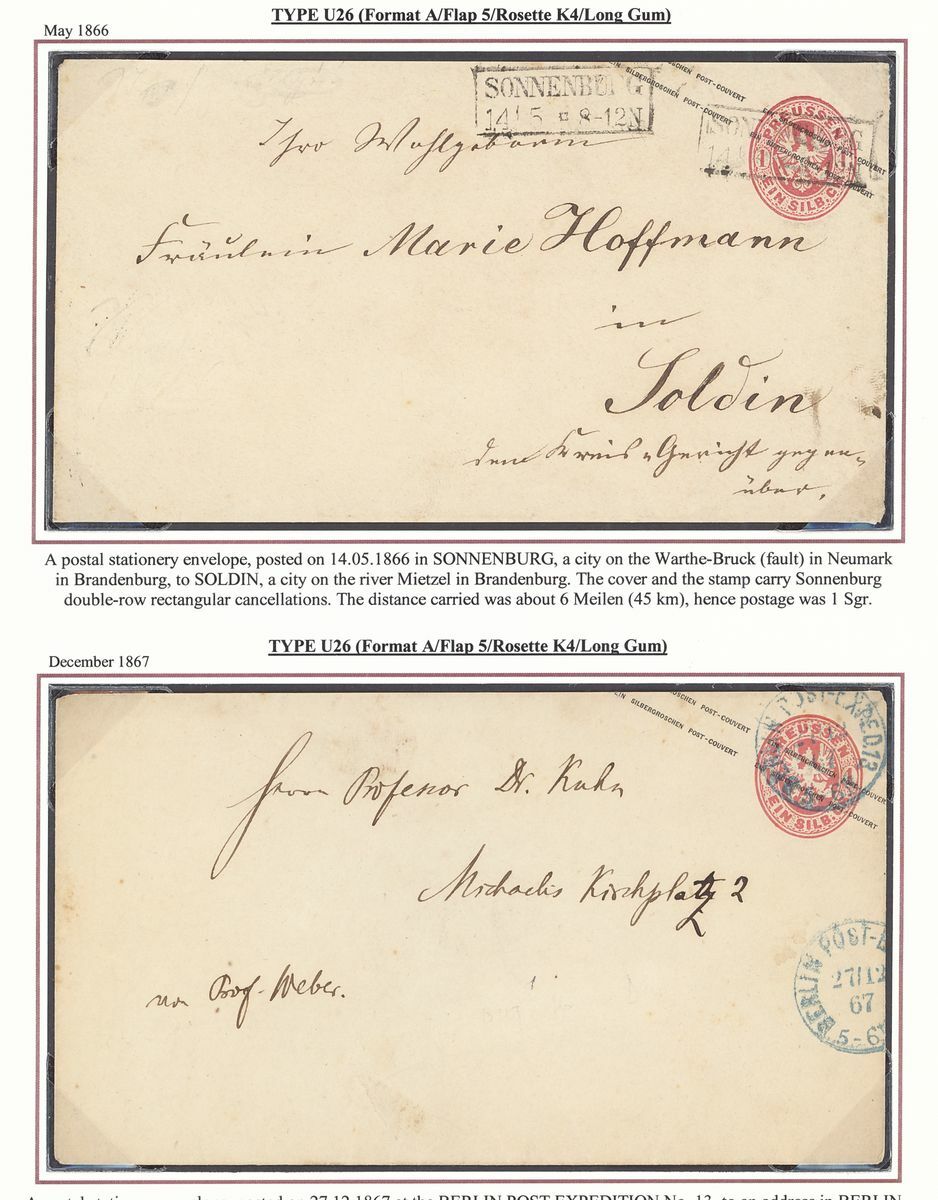 TYPE U26 (Format A/Flap 5/Rosette K4/Long Gum)
May 1866
SILBERGROSCHEN POST-COUVERT
POST-COUVERT
SONNENBURG
14 5 8-12N.
PREUSSEN
1 1
EIN SILB.G
EIN SILBERGROSCHEN POST-COUVERT
EIN SILBERGROSCHEN POST-COUVERT
Ihro Wohlgeboren
Fräulein Marie Hoffmann
in
Soldin
dem Kreis-Gericht gegen-
über.
A postal stationery envelope, posted on 14.05.1866 in SONNENBURG, a city on the Warthe-Bruck (fault) in Neumark
in Brandenburg, to SOLDIN, a city on the river Mietzel in Brandenburg. The cover and the stamp carry Sonnenburg
double-row rectangular cancellations. The distance carried was about 6 Meilen (45 km), hence postage was 1 Sgr.
TYPE U26 (Format A/Flap 5/Rosette K4/Long Gum)
December 1867
POST-COUVERT
EIN SILBERGROSCHEN POST-COUVERT
POST-EXPED.13
PREUSSEN
1
EIN SILB.G
Herrn Professor Dr. Kuhn
Michaelis Kirchplatz 2
von Prof. Weber.
BERLIN POST-E
27/12
67
5-6
A postal stationery envelope, posted on 27.12.1867 at the BERLIN POST EXPEDITION No. 13, to an address in BERLIN